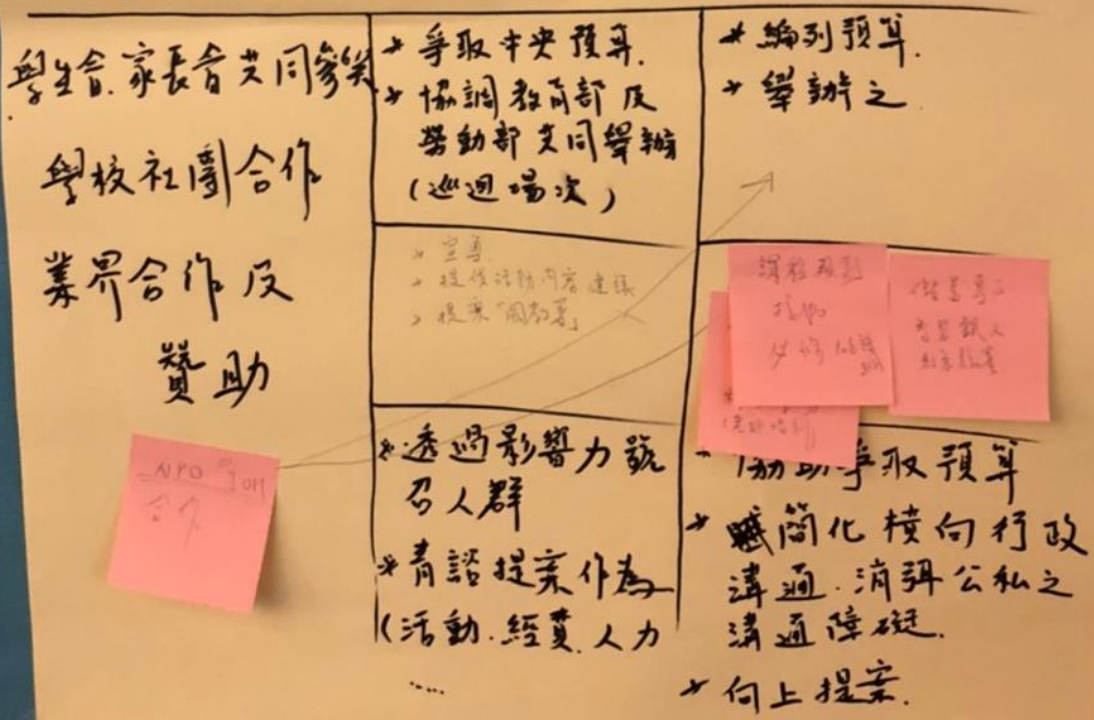 學生會.家長會共同參與
學校社團合作
業界合作及
贊助
NPO
合作
* 爭取中央預算.
* 協調教育部及
勞動部共同舉辦
(巡迴場次)
* 宣導
* 提供活動內容建議
* 提案"國教署"
* 透過影響力號
召人群
* 青諮提案作為
(活動.經費.人力
.....
* 編列預算.
* 舉辦之
課程
必修
* 協助爭取預算
* 簡化橫向行政
溝通.消弭公私之
溝通障礙.
* 向上提案.